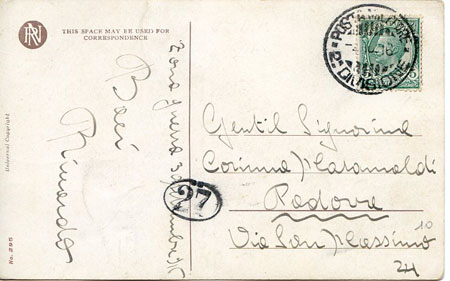 THIS SPACE MAY BE USED FOR
CORRESPONDENCE
Zona guerra
Baci
Rinaldo
Universal Copyright
No. 295
POSTA MILITARE
2ª DIVISIONE
27
Gentil Signorina
Corinna
Padova
Via San Massimo
10
24